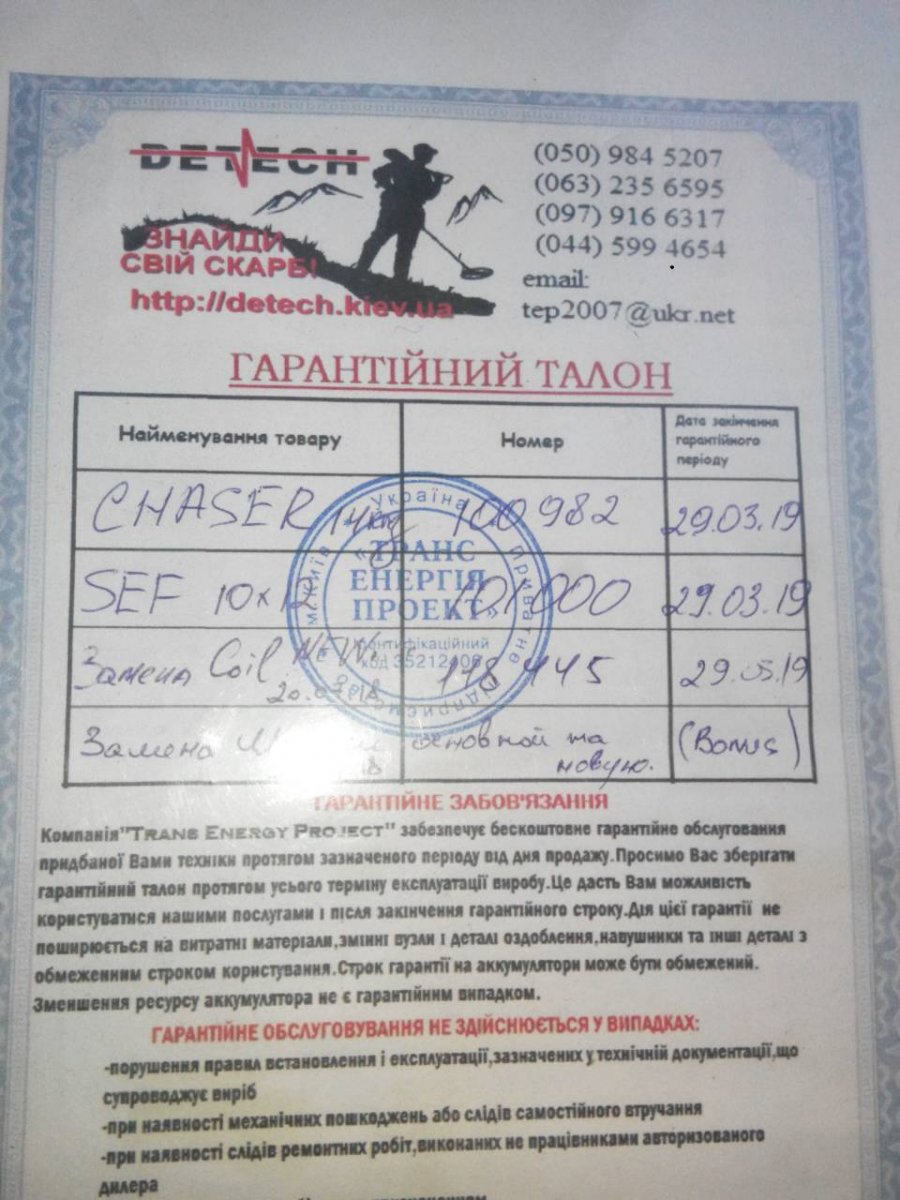 DETECH
ЗНАЙДИ
СВІЙ СКАРБ!
http://detech.kiev.ua
(050) 984 5207
(063) 235 6595
(097) 916 6317
(044) 599 4654
email:
tep2007@ukr.net
ГАРАНТІЙНИЙ ТАЛОН
Найменування товару Номер Дата закінчення гарантійного періоду
CHASER 14 100982 29.03.19
SEF 10x12 101000 29.03.19
Замена Coil NEW 118445 29.05.19
20.03.18
Замена основной та новую. (Bonus)
Україна
Приватне підприємство
м.Київ
«ТРАНС
ЕНЕРГІЯ
ПРОЕКТ»
Ідентифікаційний
код 35212406
ГАРАНТІЙНЕ ЗАБОВ'ЯЗАННЯ
Компанія"TRANS ENERGY PROJECT" забезпечує бескоштовне гарантійне обслуговання
придбаної Вами техніки протягом зазначеного періоду від дня продажу.Просимо Вас зберігати
гарантійний талон протягом усього терміну експлуатації виробу.Це дасть Вам можливість
користуватися нашими послугами і після закінчення гарантійного строку.Дія цієї гарантії не
поширюється на витратні матеріали,змінні вузли і деталі оздоблення,навушники та інші деталі з
обмеженним строком користування.Строк гарантії на аккумулятори може бути обмежений.
Зменшення ресурсу аккумулятора не є гарантійним випадком.
ГАРАНТІЙНЕ ОБСЛУГОВУВАННЯ НЕ ЗДІЙСНЮЄТЬСЯ У ВИПАДКАХ:
-порушення правил встановлення і експлуатації,зазначених у технічній документації,що
супроводжує виріб
-при наявності механічних пошкоджень або слідів самостійного втручання
-при наявності слідів ремонтних робіт,виконаних не працівниками авторизованого
дилера